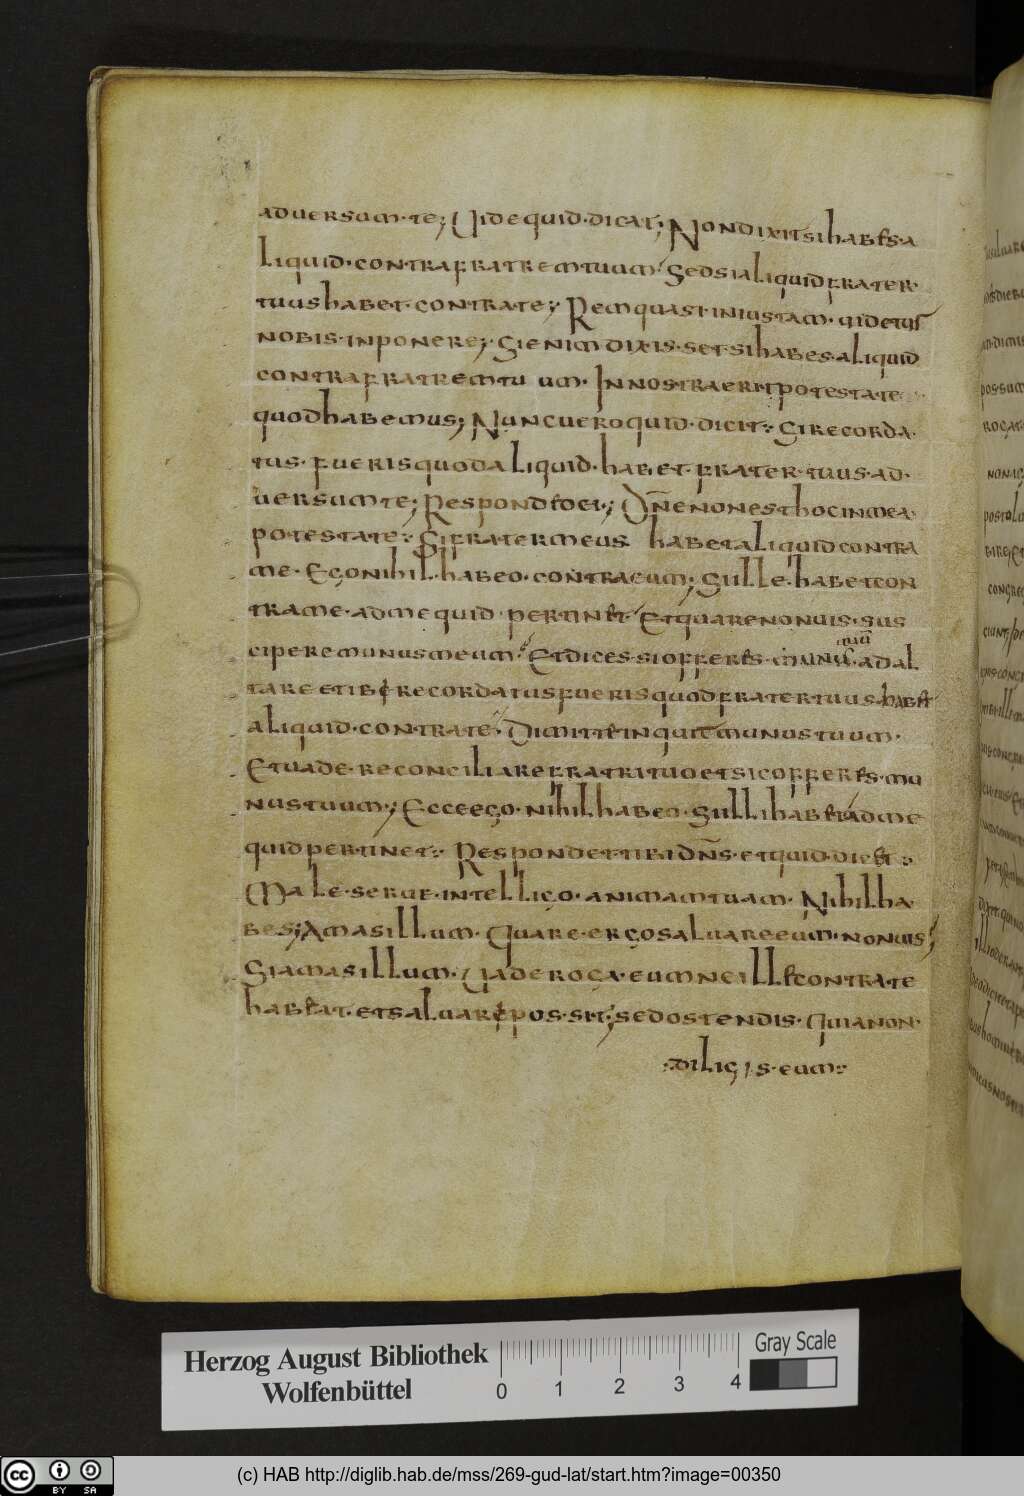 aduersum·te; Uide quid·dicat; Non dixit si habes·a
liquid·contra fratrem tuum; Sed si aliquid frater·
tuus habet·contra te; Rem quasi·iniustam·uidetur
nobis·inponere; Si enim dixis·set·si habes·aliquid
contra fratrem tu um· In nostra erit potestate
quod habemus; Nunc uero quid·dicit; Si recorda·
tus·fueris quod aliquid·habet·frater·tuus·ad·
uersum te; Respond&deo·; Dñe non est hoc in mea·
potestate; Si frater meus habet aliquid contra
me· Ego nihil·habeo·contra eum; Sille·habet con
tra me·ad me quid pertinet· Et quare non uis·sus
cipere munus meum; Et dices·si offeres·munus tuũ·ad al
tare et ibi recordatus fueris quod frater tuus·habet
aliquid·contra te; Dimitte inquit munus tuum·
Et uade·reconciliare fratri tuo et sic offeres·mu
nus tuum; Ecce ego·nihil habeo·Si illi habet ad me
quid pertinet; Respondet tibi dñs·et quid·dicit;
Male·serue·intelligo·animam tuam· Nihil ha·
bes; Amas illum· Quare·ergo saluare eum·non uis;
Si amas illum· Uade roga·eum ne ille contra te
habeat·et saluare pos·sit; sed ostendis· Quia non·
diligis·eum;
Herzog August Bibliothek
Wolfenbüttel
0 1 2 3 4
Gray Scale
cc BY SA
(c) HAB http://diglib.hab.de/mss/269-gud-lat/start.htm?image=00350